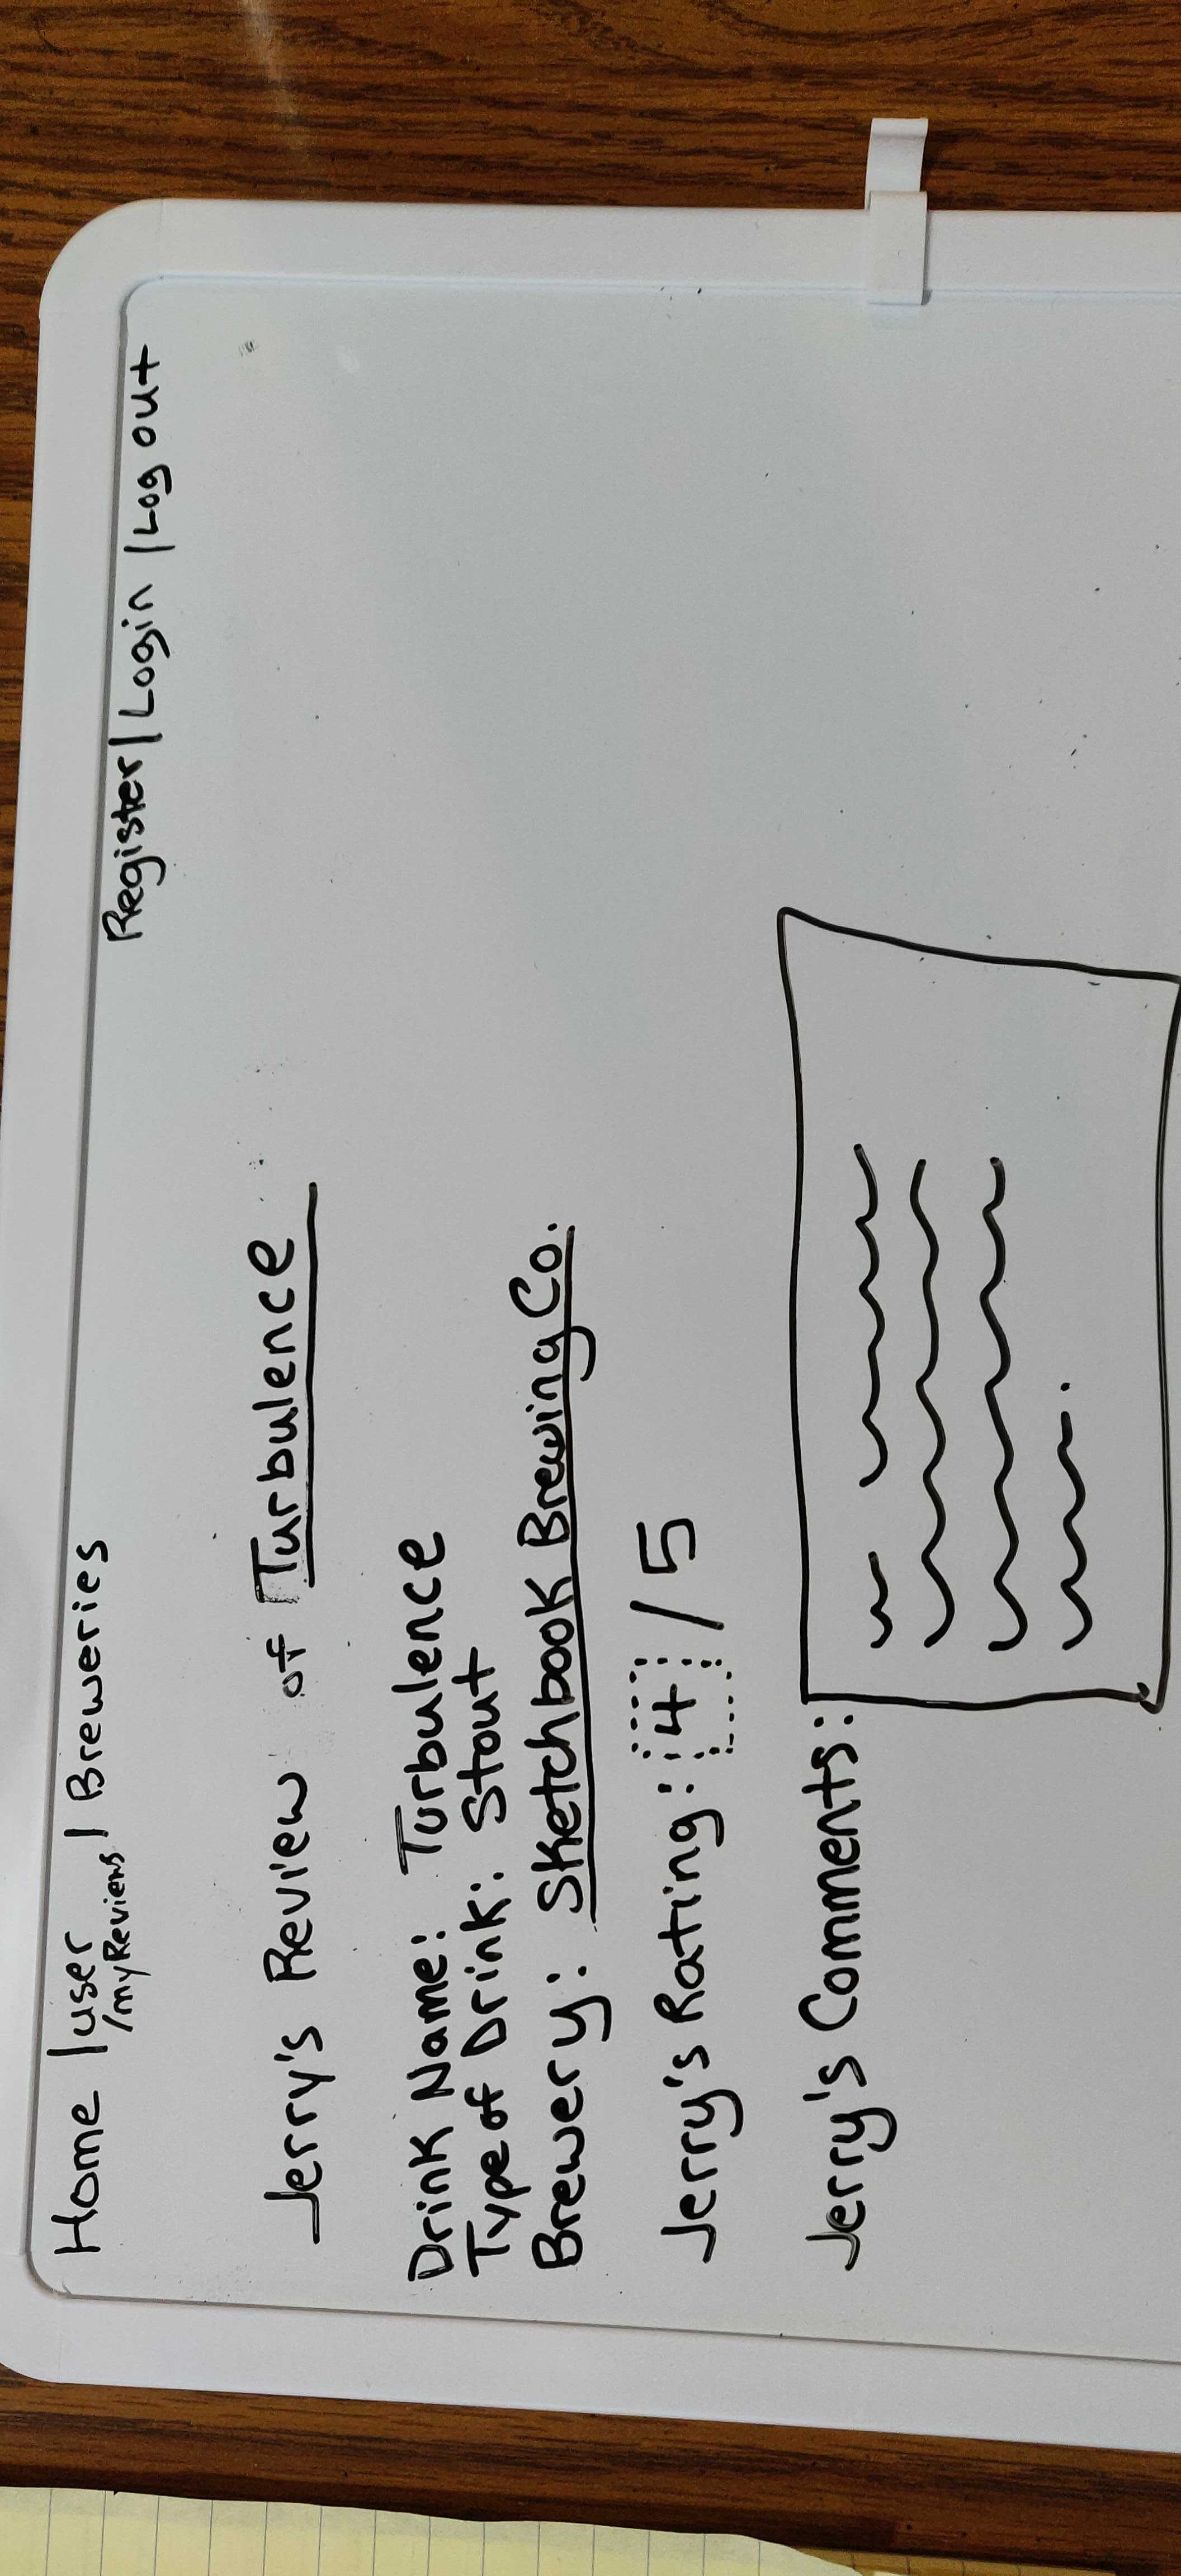 Home | user /myReviews | Breweries Register | Login | Log out
Jerry's Review of Turbulence
Drink Name: Turbulence
Type of Drink: Stout
Brewery: Sketchbook Brewing Co.
Jerry's Rating: 4 / 5
Jerry's Comments: